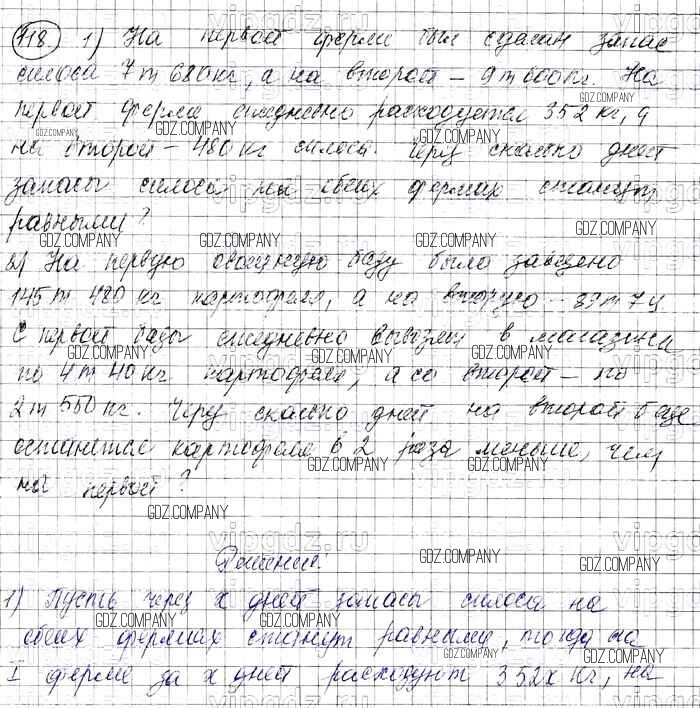 118. 1) На первой ферме был сделан запас
силоса 7 т 680 кг, а на второй – 9 т 600 кг. На
первой ферме ежедневно расходуется 352 кг, а
на второй – 480 кг силоса. Через сколько дней
запасы силоса на обеих фермах станут
равными?
2) На первую овощную базу было завезено
145 т 480 кг картофеля, а на вторую – 89 т 7 ц
С первой базы ежедневно вывозили в магазины
по 4 т 40 кг картофеля, а со второй – по
2 т 550 кг. Через сколько дней на второй базе
останется картофеля в 2 раза меньше, чем
на первой?
Решение.
1) Пусть через x дней запасы силоса на
обеих фермах станут равными, тогда на
I ферме за x дней расходуют 352x кг, на